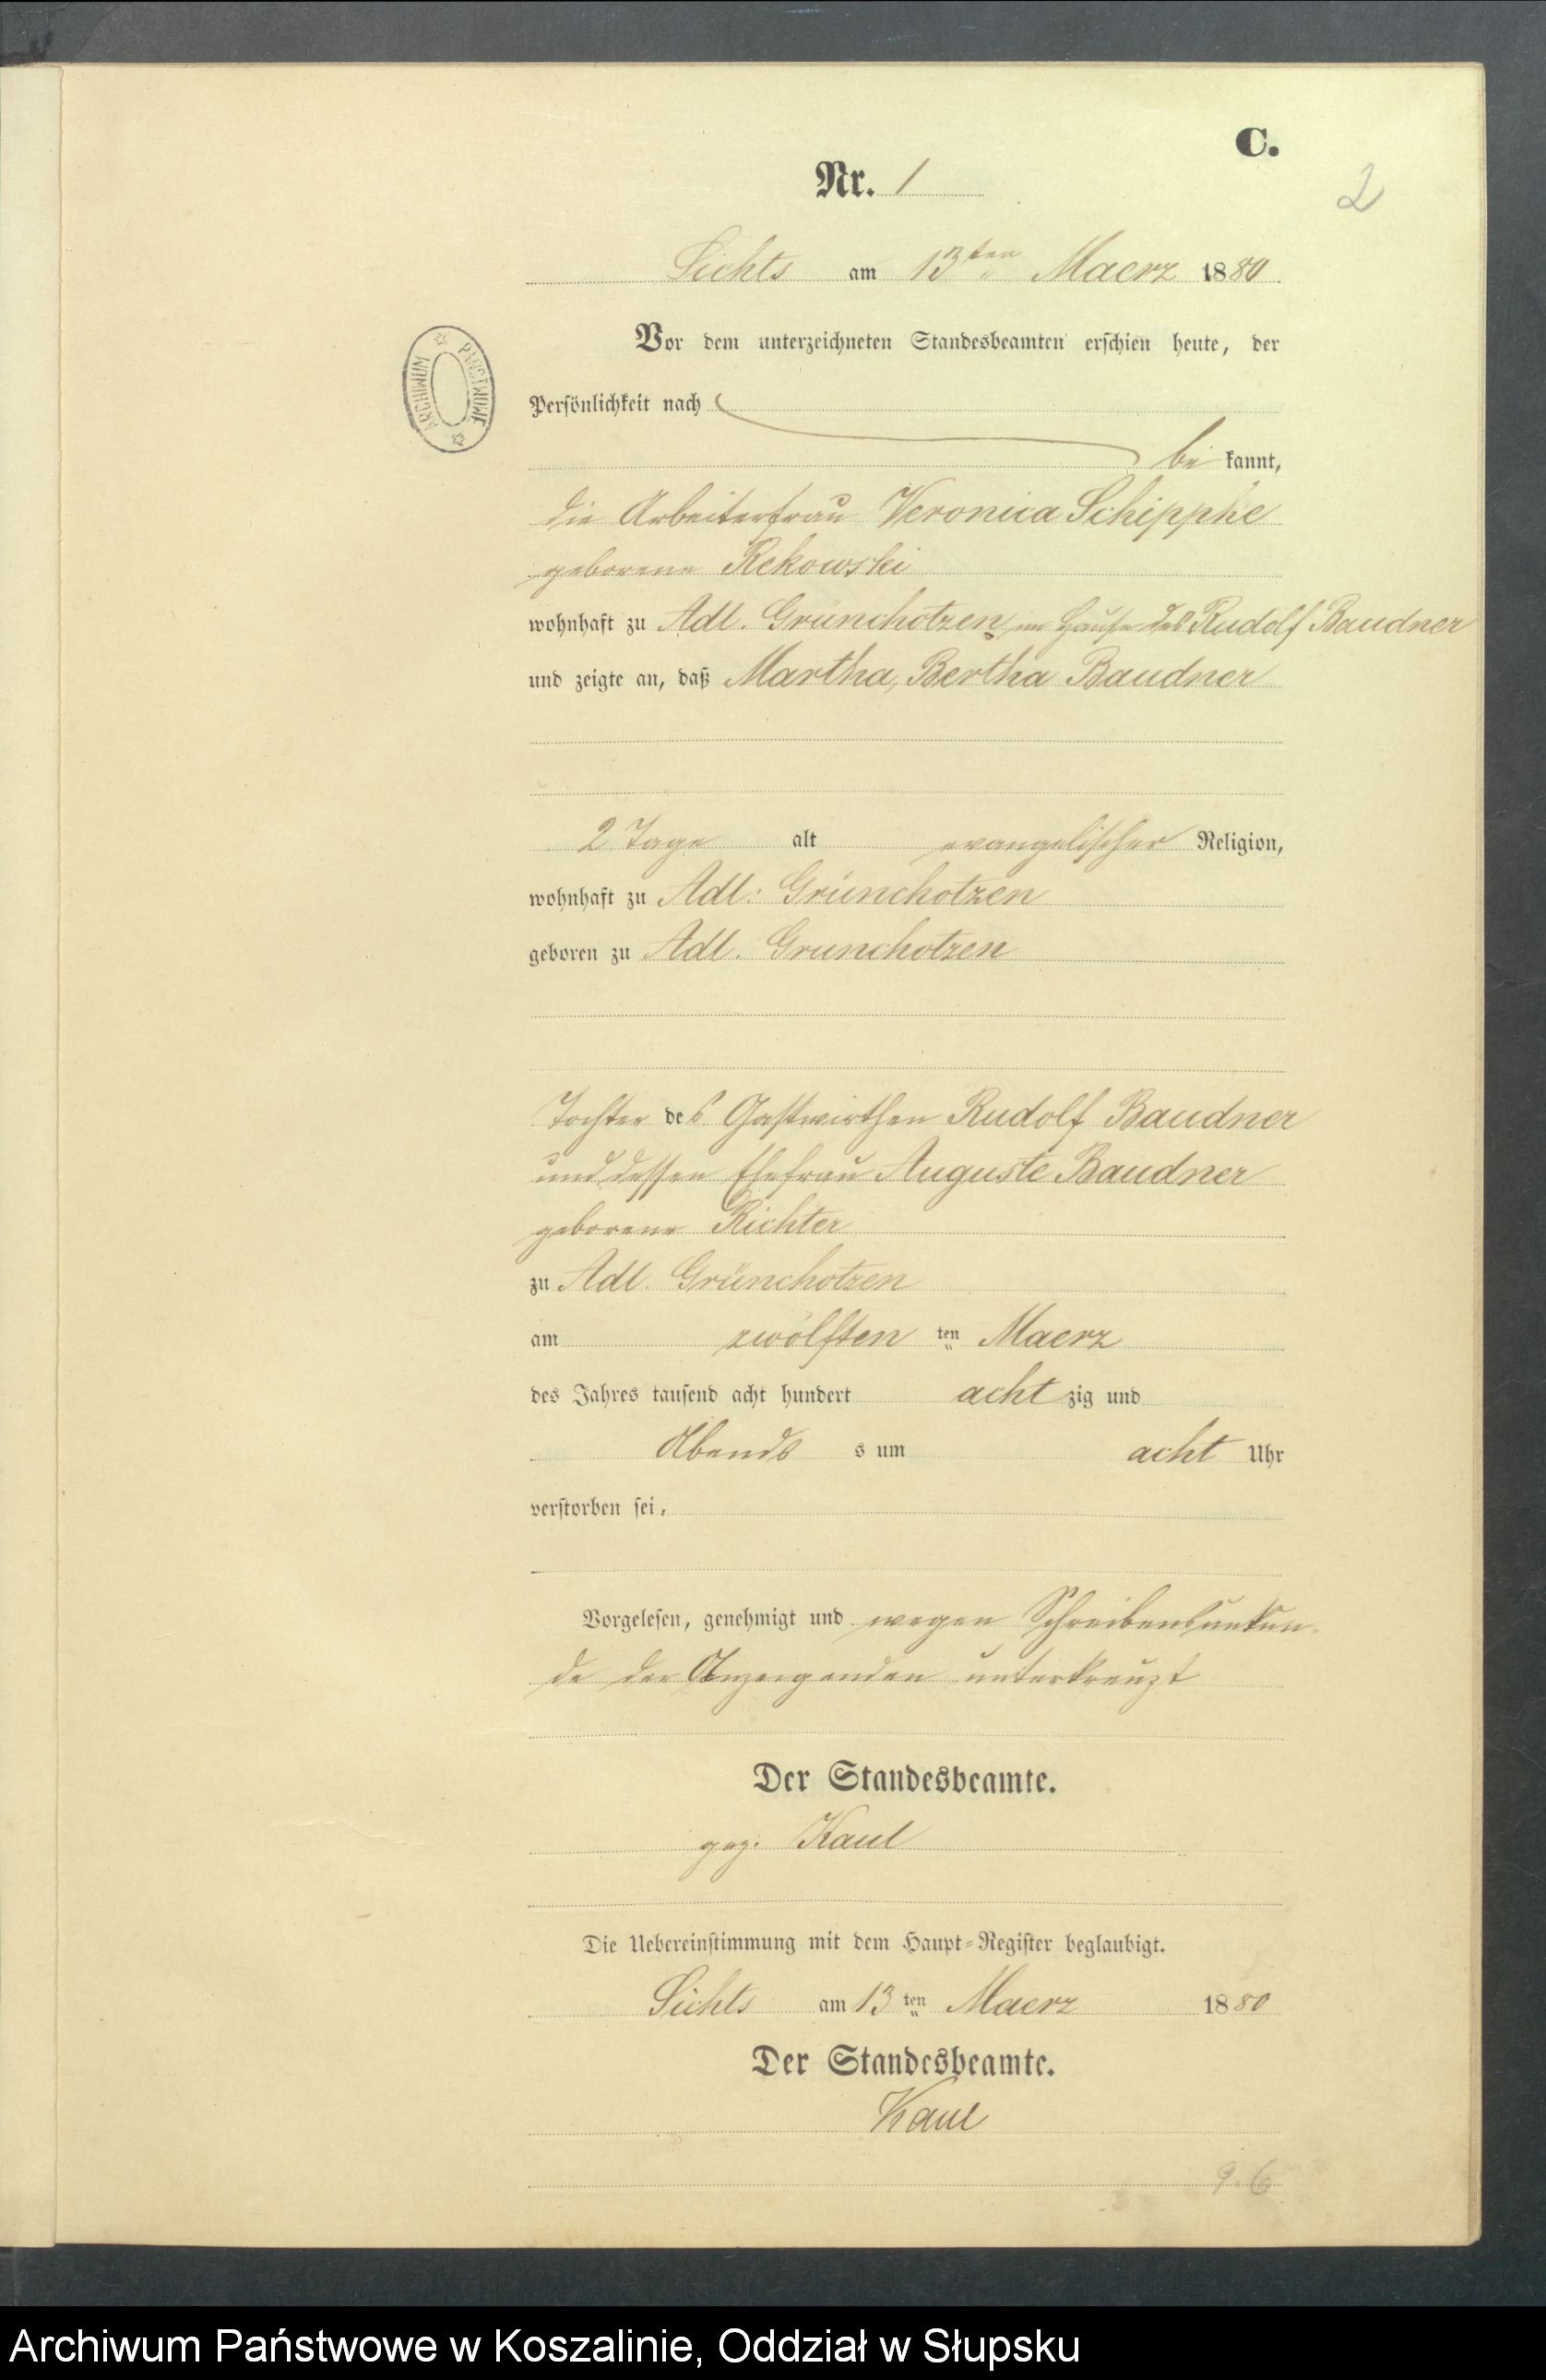 C.
Nr. 1
2
Lichts am 13ten Maerz 1880
Vor dem unterzeichneten Standesbeamten erschien heute, der
Persönlichkeit nach
be kannt,
die Arbeiterfrau Veronica Schippke
geborene Rekowski
wohnhaft zu Adl. Grünchotzen im Hause des Rudolf Baudner
und zeigte an, daß Martha, Bertha Baudner
2 Tage alt evangelischer Religion,
wohnhaft zu Adl: Grünchotzen
geboren zu Adl. Grunchotzen
Tochter des Gastwirthen Rudolf Baudner
und dessen Ehefrau Auguste Baudner
geborene Richter
zu Adl. Grünchotzen
am zwölften ten Maerz
des Jahres tausend acht hundert acht zig und
Abends s um acht Uhr
verstorben sei,
Vorgelesen, genehmigt und wegen Schreibensunkun-
de der Anzeigenden unterkreuzt
Der Standesbeamte.
gez. Kaul
Die Uebereinstimmung mit dem Haupt-Register beglaubigt.
Lichts am 13 ten Maerz 1880
Der Standesbeamte.
Kaul
9.6
ARCHIWUM PAŃSTWOWE
Archiwum Państwowe w Koszalinie, Oddział w Słupsku